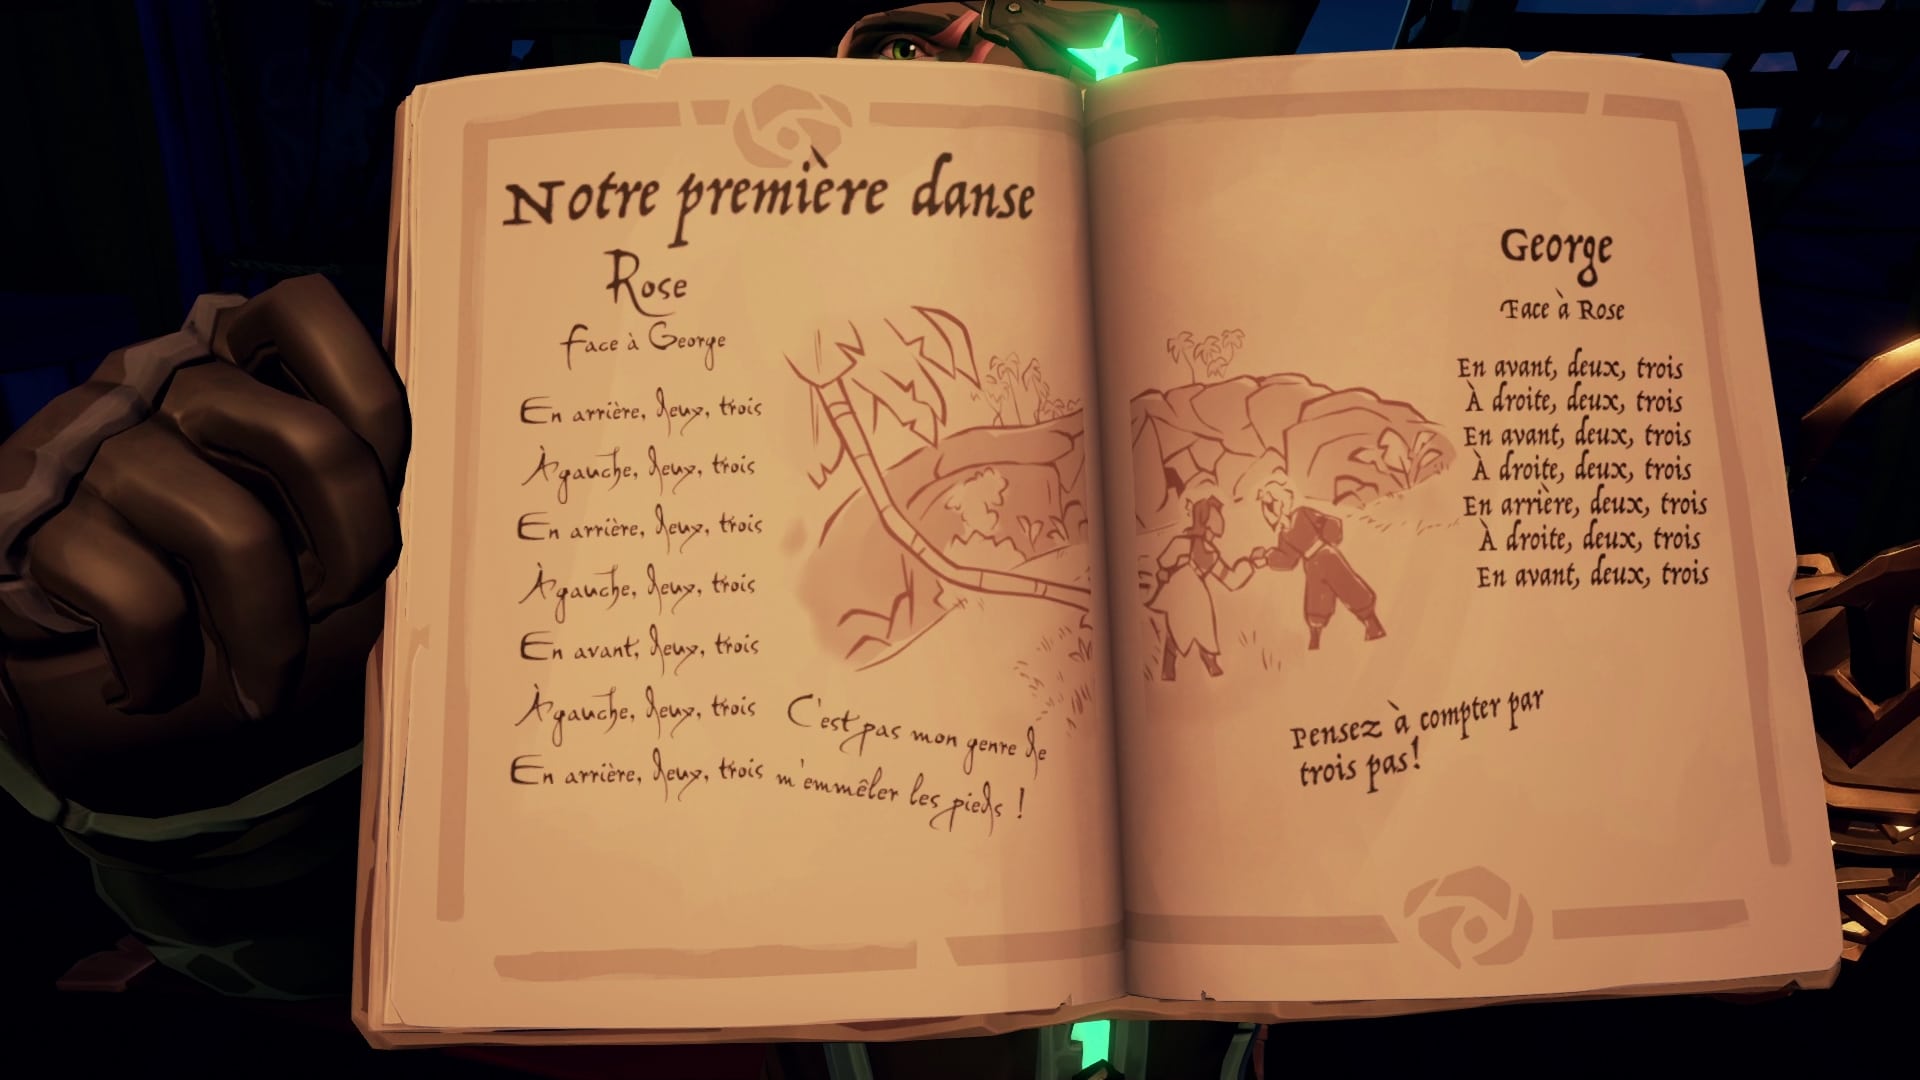 Notre première danse
Rose
Face à George
En arrière, deux, trois
À gauche, deux, trois
En arrière, deux, trois
À gauche, deux, trois
En avant, deux, trois
À gauche, deux, trois
En arrière, deux, trois
C'est pas mon genre de
m'emmêler les pieds !
George
Face à Rose
En avant, deux, trois
À droite, deux, trois
En avant, deux, trois
À droite, deux, trois
En arrière, deux, trois
À droite, deux, trois
En avant, deux, trois
Pensez à compter par
trois pas!